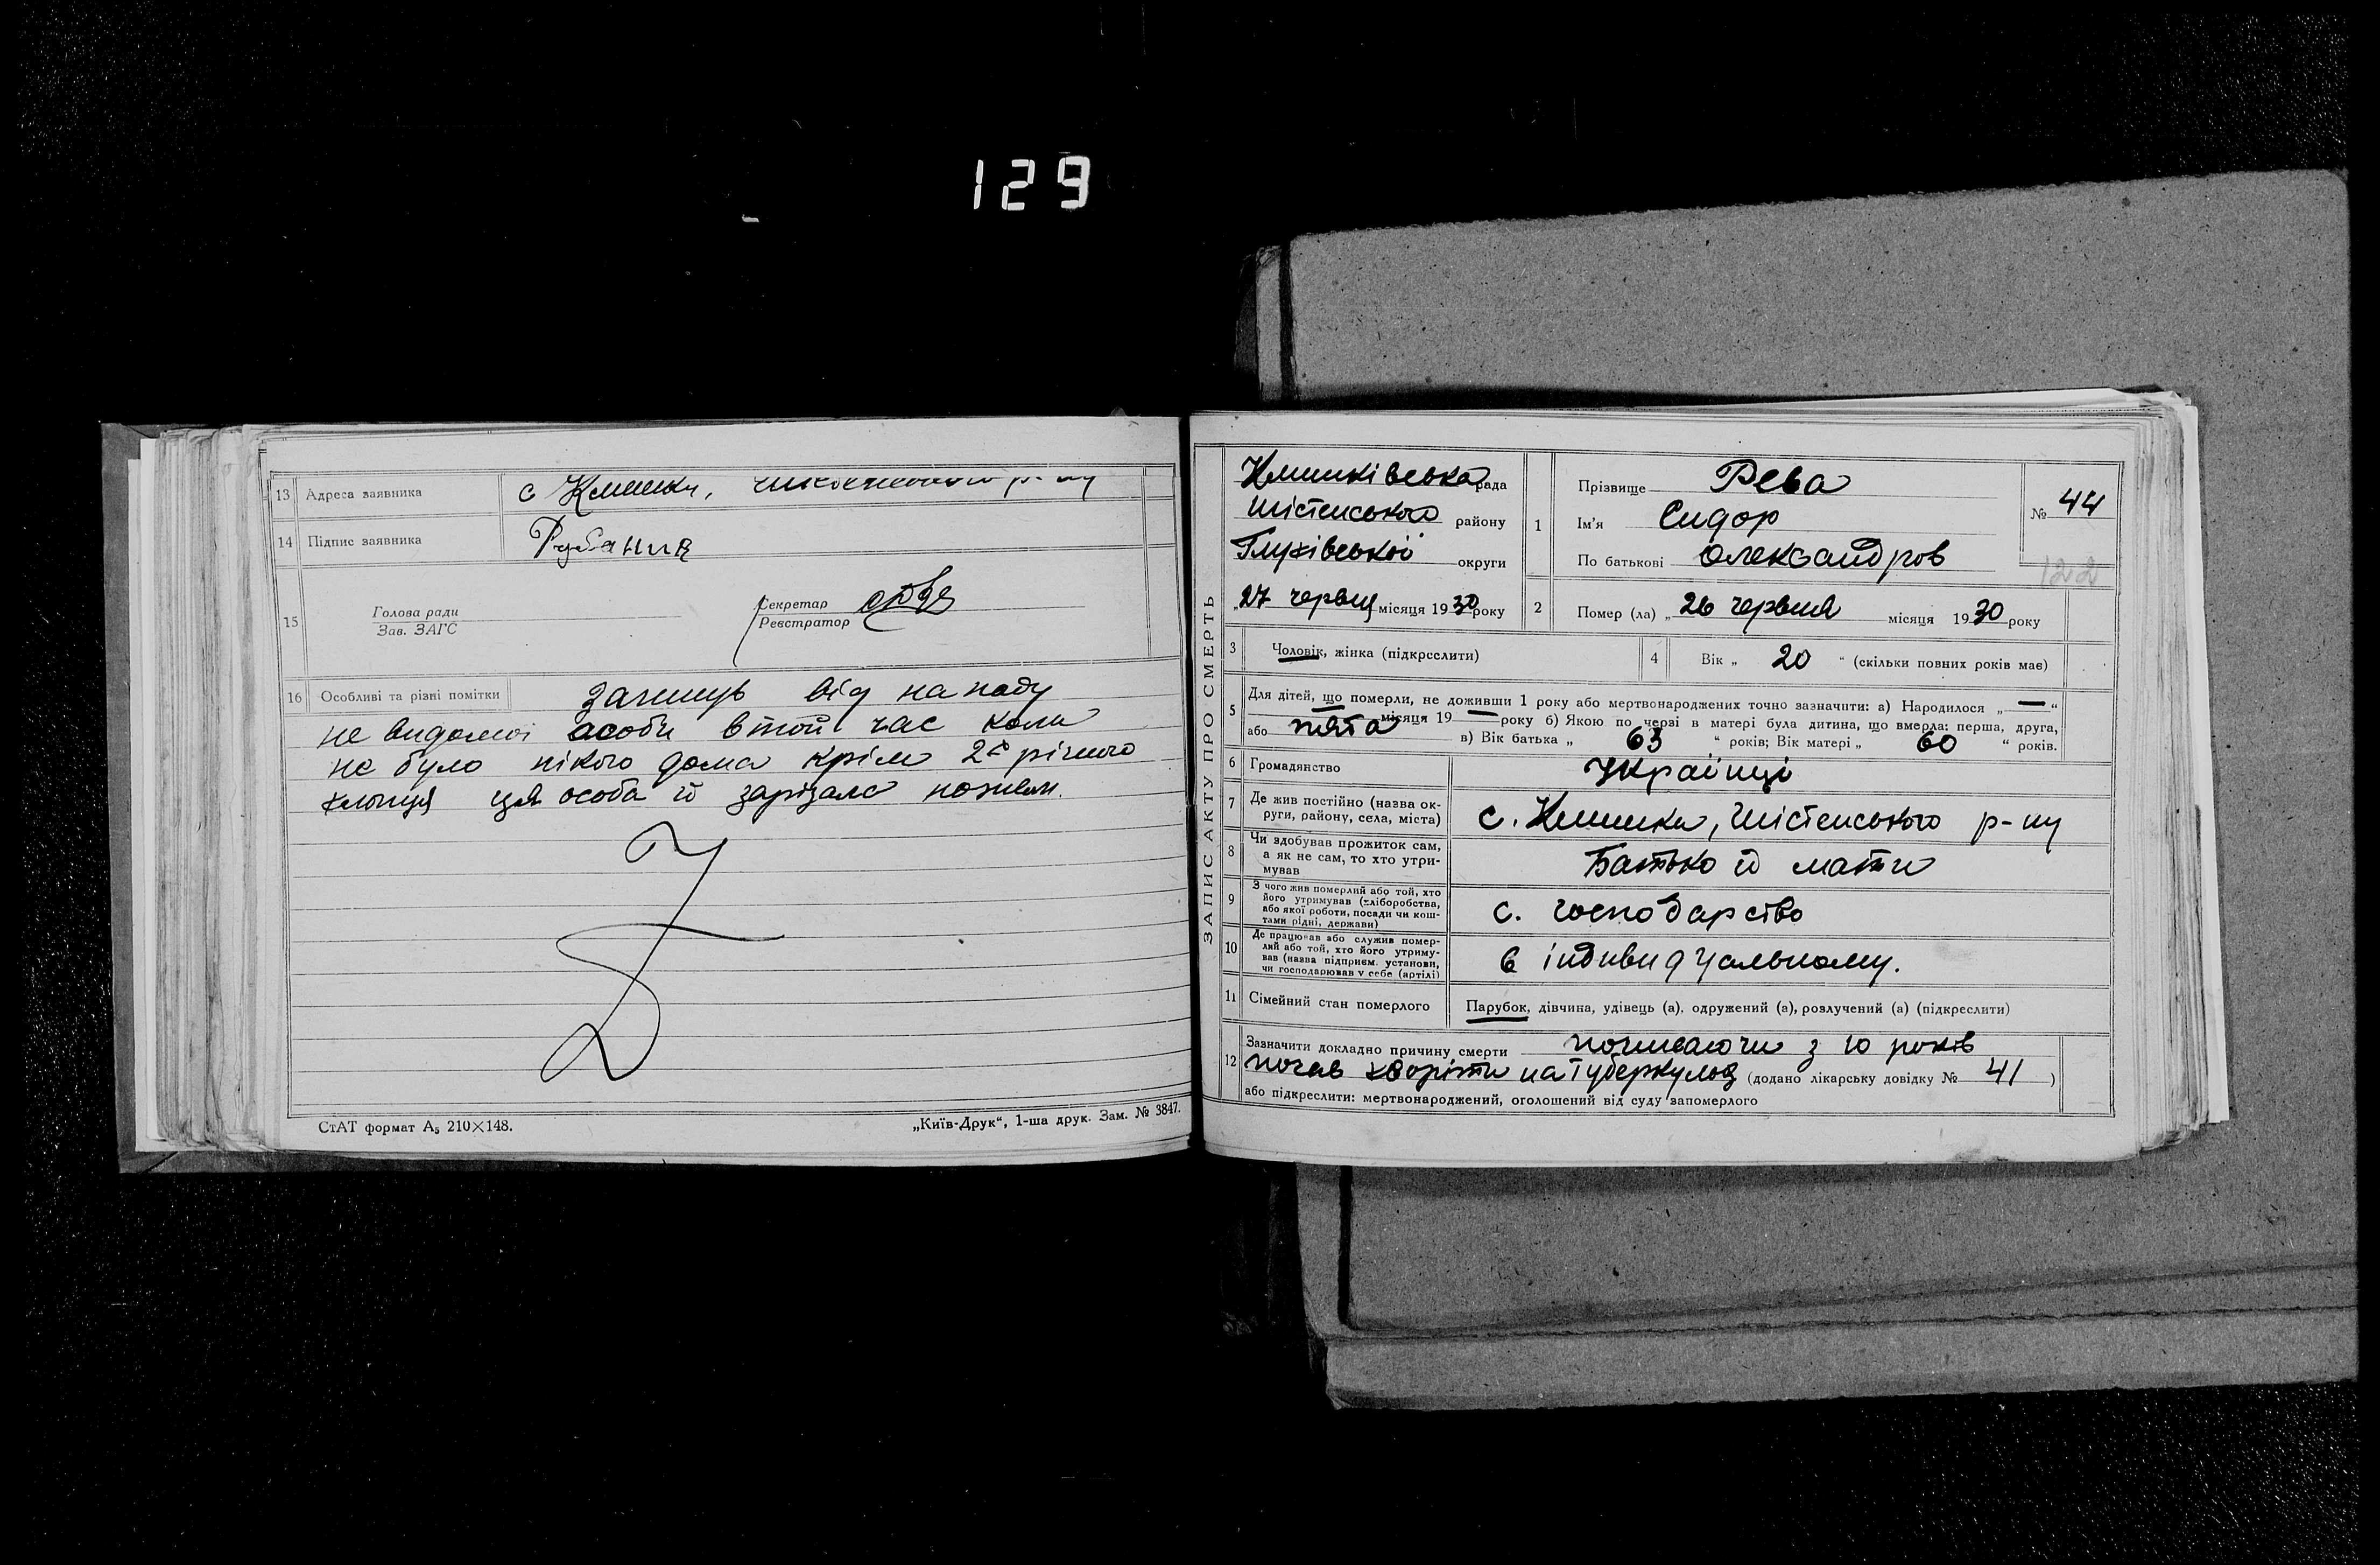 129
13 Адреса заявника с Клишки, Шістенського р-ну
14 Підпис заявника Рубанця
15 Голова ради Секретар
Зав. ЗАГС Реєстратор
16 Особливі та різні помітки загинув від нападу
не видомої особи в той час коли
не було нікого дома крім 2х річного
хлопця ця особа й зарізала ножем.
СтАТ формат А5 210×148. „Київ-Друк“, 1-ша друк. Зам. № 3847.
ЗАПИС АКТУ ПРО СМЕРТЬ
Клишківська рада
Шістенського району
Глухівської округи
„27 червня місяця 1930 року
1 Прізвище Рева
Ім'я Сидор
По батькові Олександров
№ 44
122
2 Помер (ла) „26 червня місяця 1930 року
3 Чоловік, жінка (підкреслити)
4 Вік „ 20 “ (скільки повних років має)
5 Для дітей, що померли, не доживши 1 року або мертвонароджених точно зазначити: а) Народилося „ — “
місяця 19 — року б) Якою по черзі в матері була дитина, що вмерла: перша, друга,
або пята в) Вік батька „ 63 “ років; Вік матері „ 60 “ років.
6 Громадянство Українці
7 Де жив постійно (назва ок-
руги, району, села, міста) с. Клишки, Шістенського р-ну
8 Чи здобував прожиток сам,
а як не сам, то хто утри-
мував Батько й мати
9 З чого жив померлий або той, хто
його утримував (хліборобства,
або якої роботи, посади чи кош-
тами рідні, держави) с. господарство
10 Де працював або служив помер-
лий або той, хто його утриму-
вав (назва підприєм. установи,
чи господарював у себе (артілі) в індивидуальному.
11 Сімейний стан померлого Парубок, дівчина, удівець (а), одружений (а), розлучений (а) (підкреслити)
12 Зазначити докладно причину смерти починаючи з 10 років
почав хворіти на туберкульоз (додано лікарську довідку № 41 )
або підкреслити: мертвонароджений, оголошений від суду запомерлого